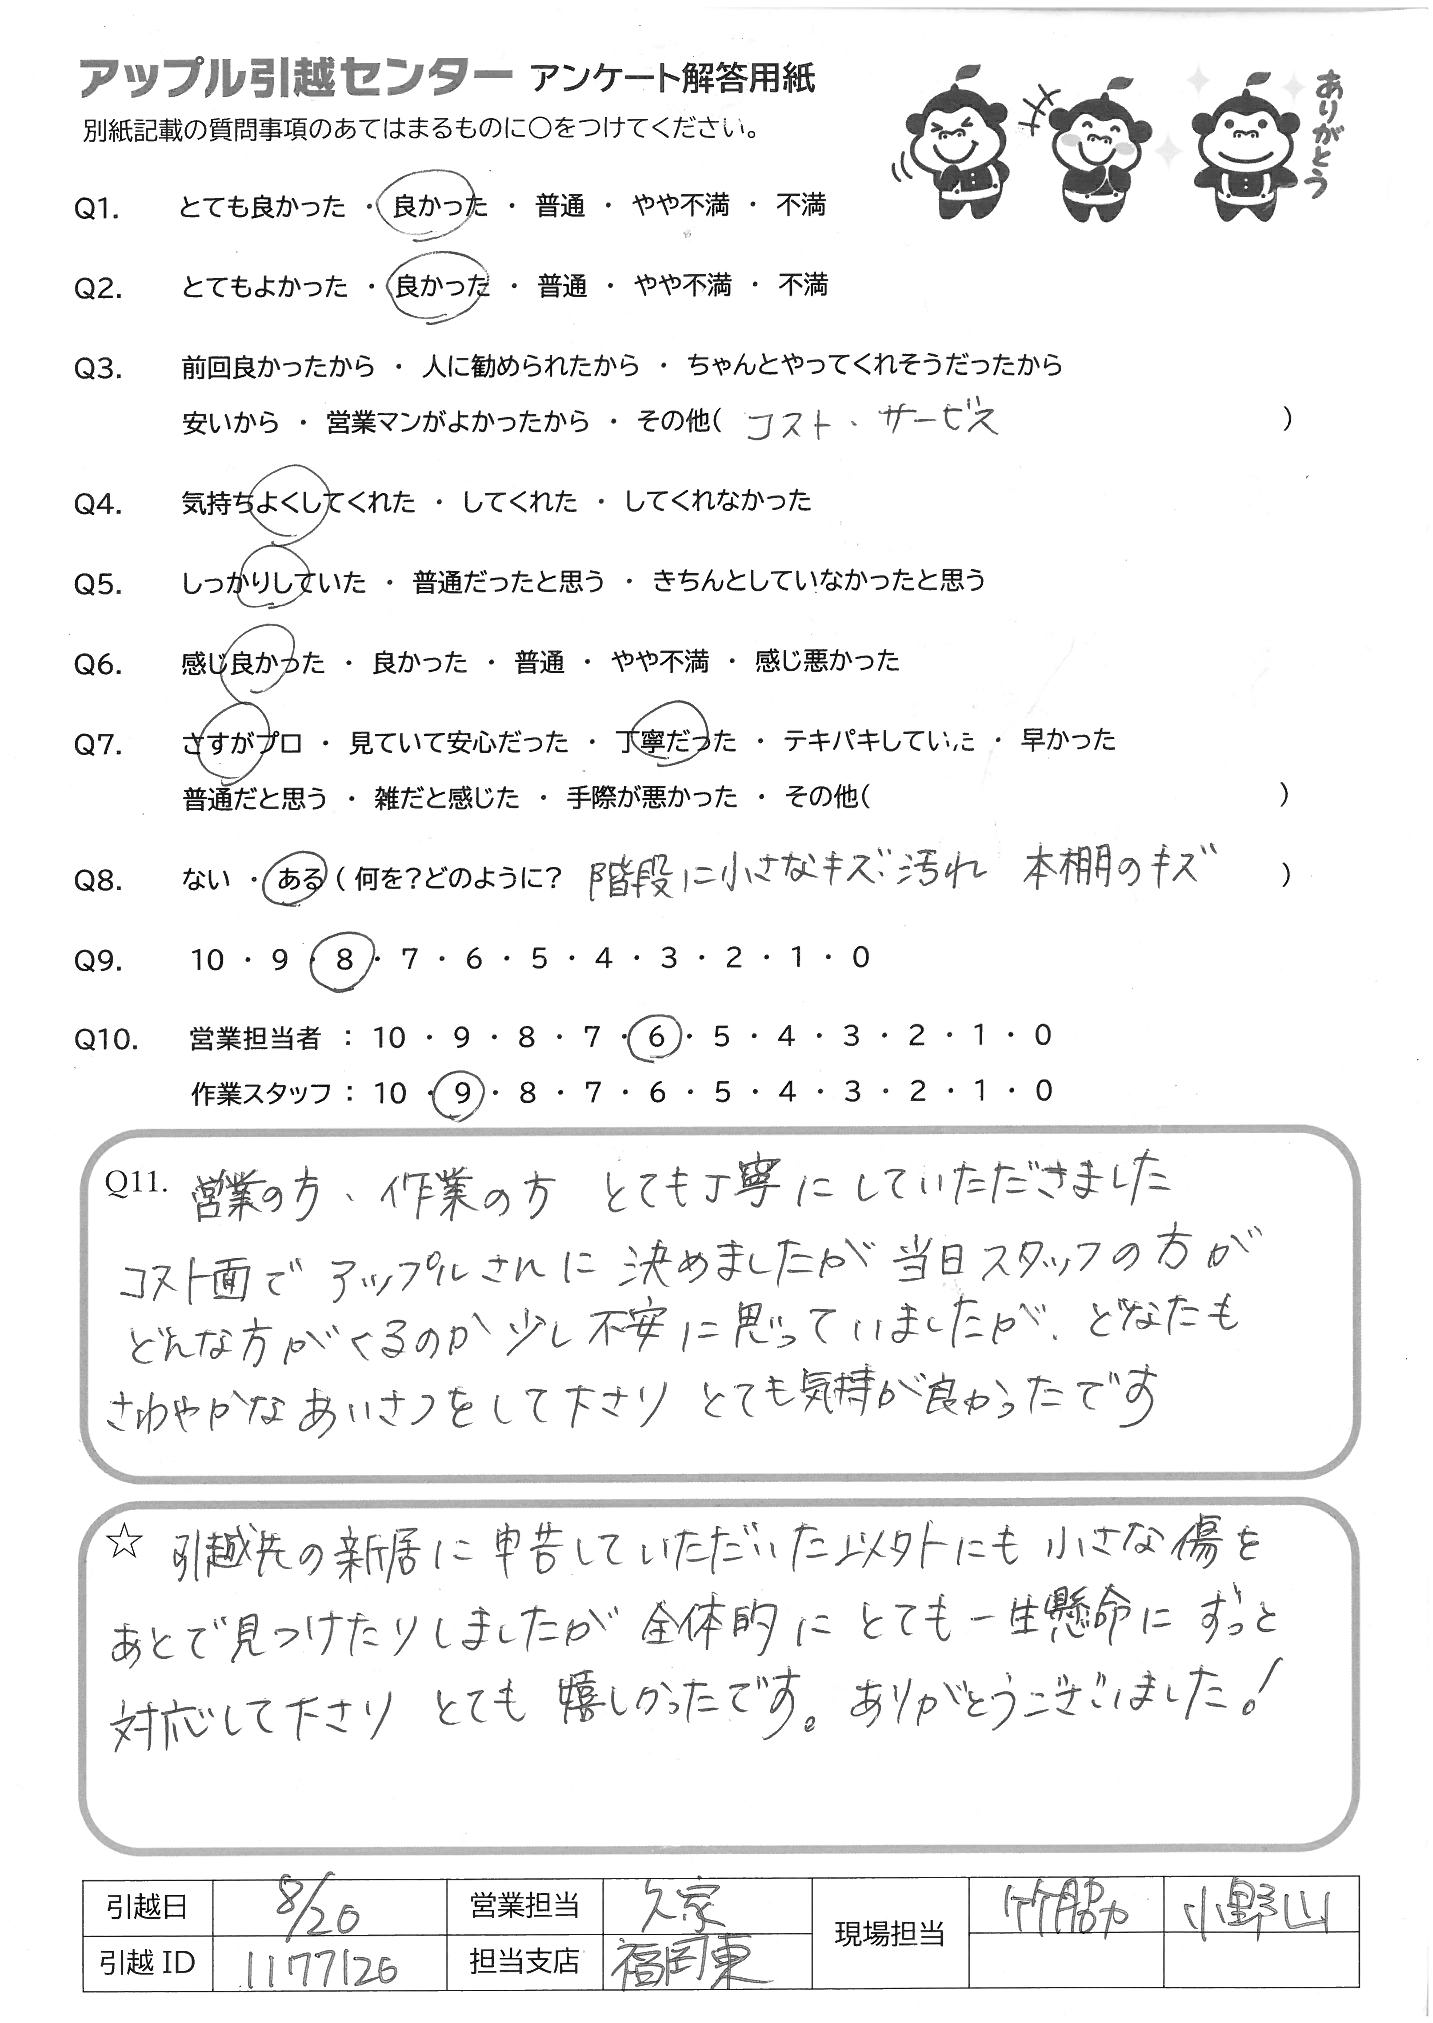 アップル引越センター アンケート解答用紙
ありがとう
別紙記載の質問事項のあてはまるものに〇をつけてください。
Q1. とても良かった ・ 良かった ・ 普通 ・ やや不満 ・ 不満
Q2. とてもよかった ・ 良かった ・ 普通 ・ やや不満 ・ 不満
Q3. 前回良かったから ・ 人に勧められたから ・ ちゃんとやってくれそうだったから
安いから ・ 営業マンがよかったから ・ その他( コスト・サービス )
Q4. 気持ちよくしてくれた ・ してくれた ・ してくれなかった
Q5. しっかりしていた ・ 普通だったと思う ・ きちんとしていなかったと思う
Q6. 感じ良かった ・ 良かった ・ 普通 ・ やや不満 ・ 感じ悪かった
Q7. さすがプロ ・ 見ていて安心だった ・ 丁寧だった ・ テキパキしていた ・ 早かった
普通だと思う ・ 雑だと感じた ・ 手際が悪かった ・ その他( )
Q8. ない ・ ある ( 何を?どのように? 階段に小さなキズ、汚れ 本棚のキズ )
Q9. 10 ・ 9 ・ 8 ・ 7 ・ 6 ・ 5 ・ 4 ・ 3 ・ 2 ・ 1 ・ 0
Q10. 営業担当者 : 10 ・ 9 ・ 8 ・ 7 ・ 6 ・ 5 ・ 4 ・ 3 ・ 2 ・ 1 ・ 0
作業スタッフ : 10 ・ 9 ・ 8 ・ 7 ・ 6 ・ 5 ・ 4 ・ 3 ・ 2 ・ 1 ・ 0
Q11. 営業の方、作業の方 とても丁寧にしていただきました
コスト面で アップルさんに 決めましたが 当日スタッフの方が
どんな方がくるのか 少し不安に思っていましたが、どなたも
さわやかなあいさつをして下さり とても気持が良かったです
☆ 引越先の新居に申告していただいた以外にも 小さな傷を
あとで見つけたりしましたが 全体的に とても一生懸命に ずっと
対応して下さり とても 嬉しかったです。ありがとうございました!
引越日 8/20 営業担当 久家 現場担当 竹脇 小野山
引越ID 1177126 担当支店 福岡東